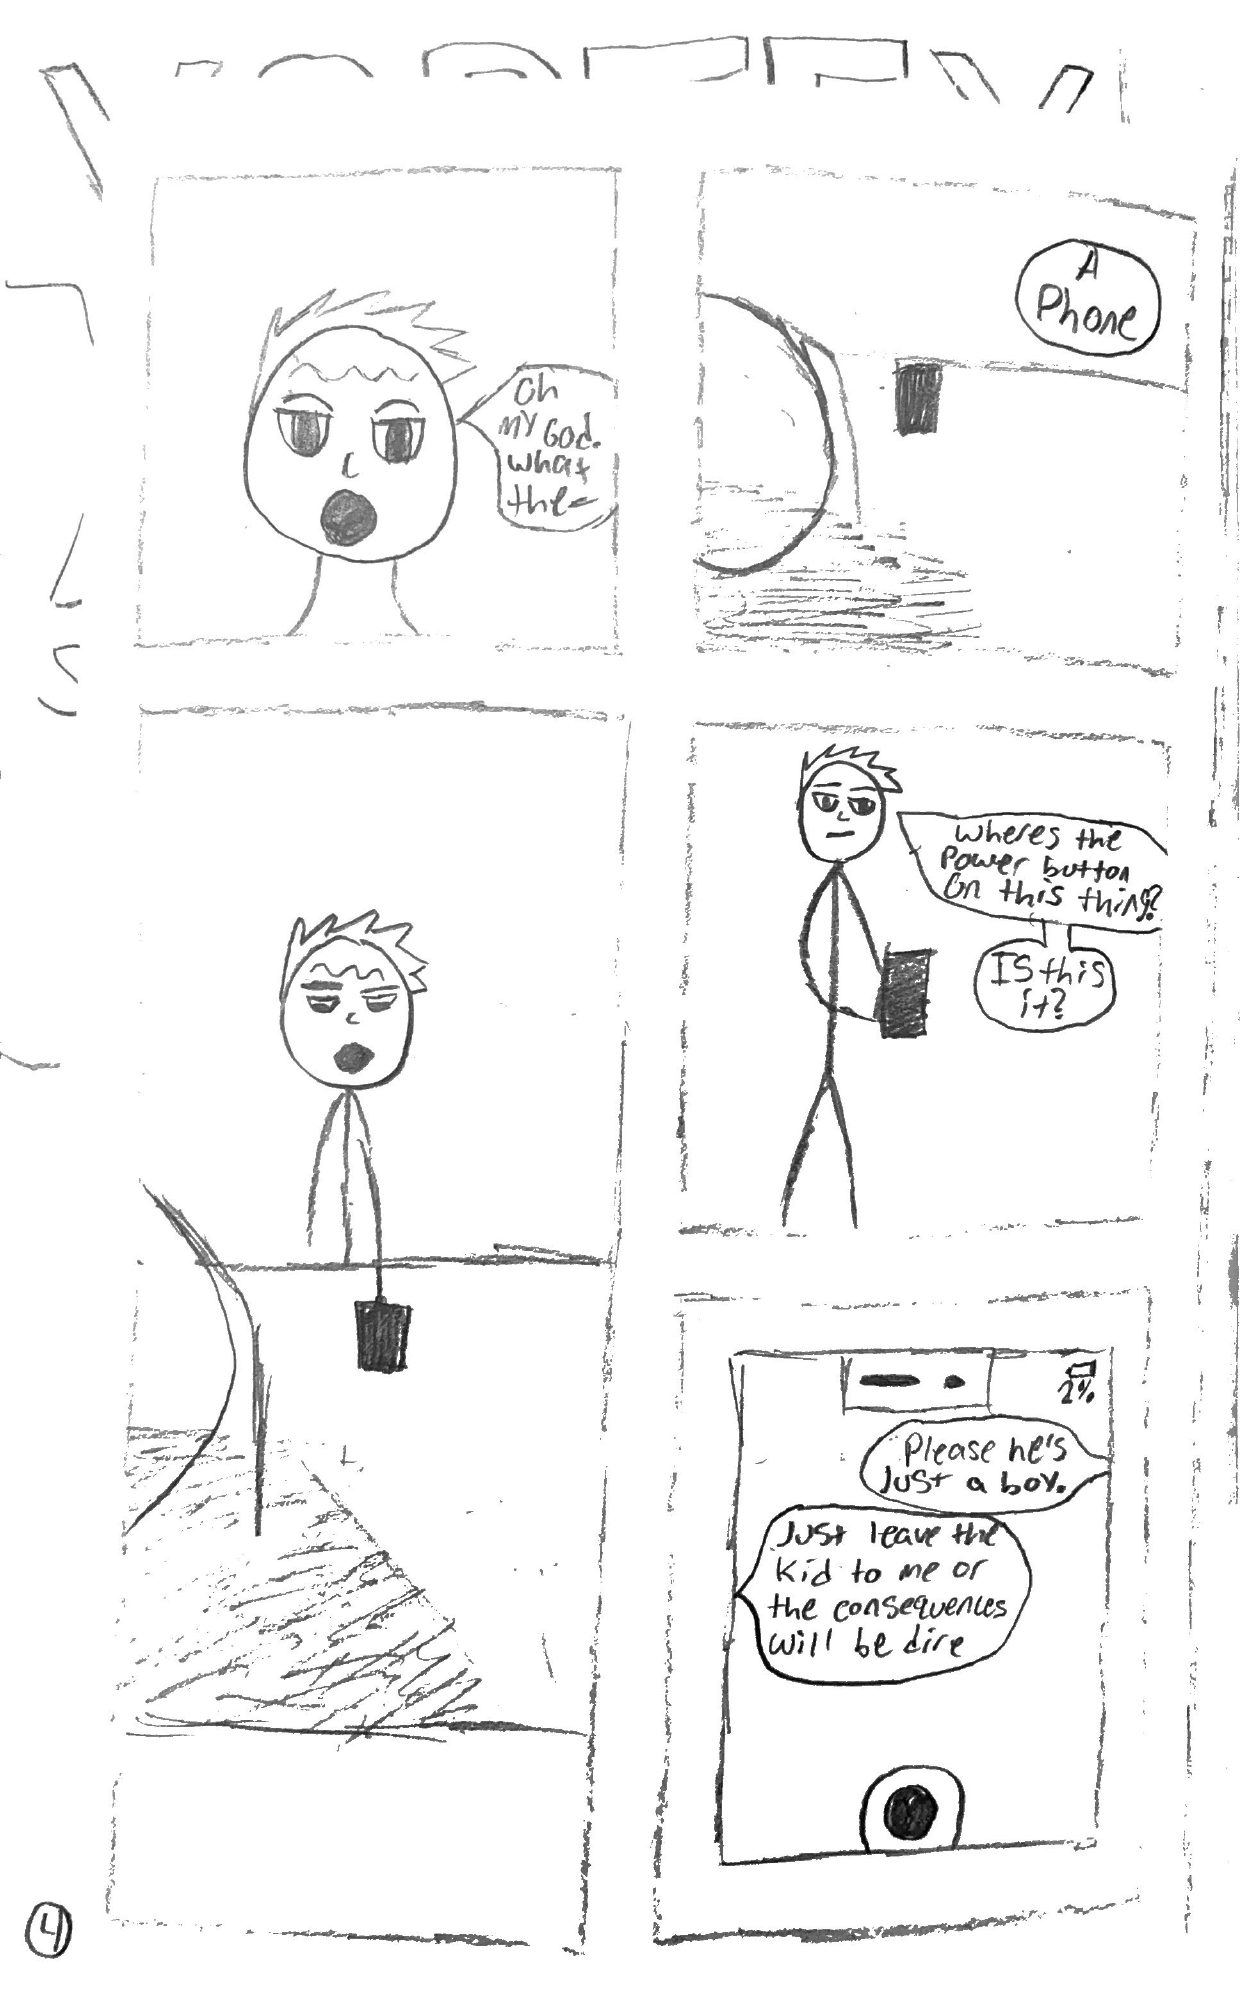 Oh
MY God.
What
the-
A
Phone
Wheres the
Power button
On this thing?
IS this
it?
2%
Please he's
Just a boy.
Just leave the
Kid to me or
the consequences
will be dire
4